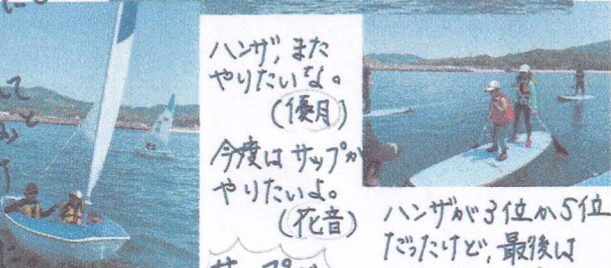 ハンザ、また
やりたいな。
(優月)
今度はサップが
やりたいよ。
(花音)
ハンザが3位か5位
だったけど、最後は